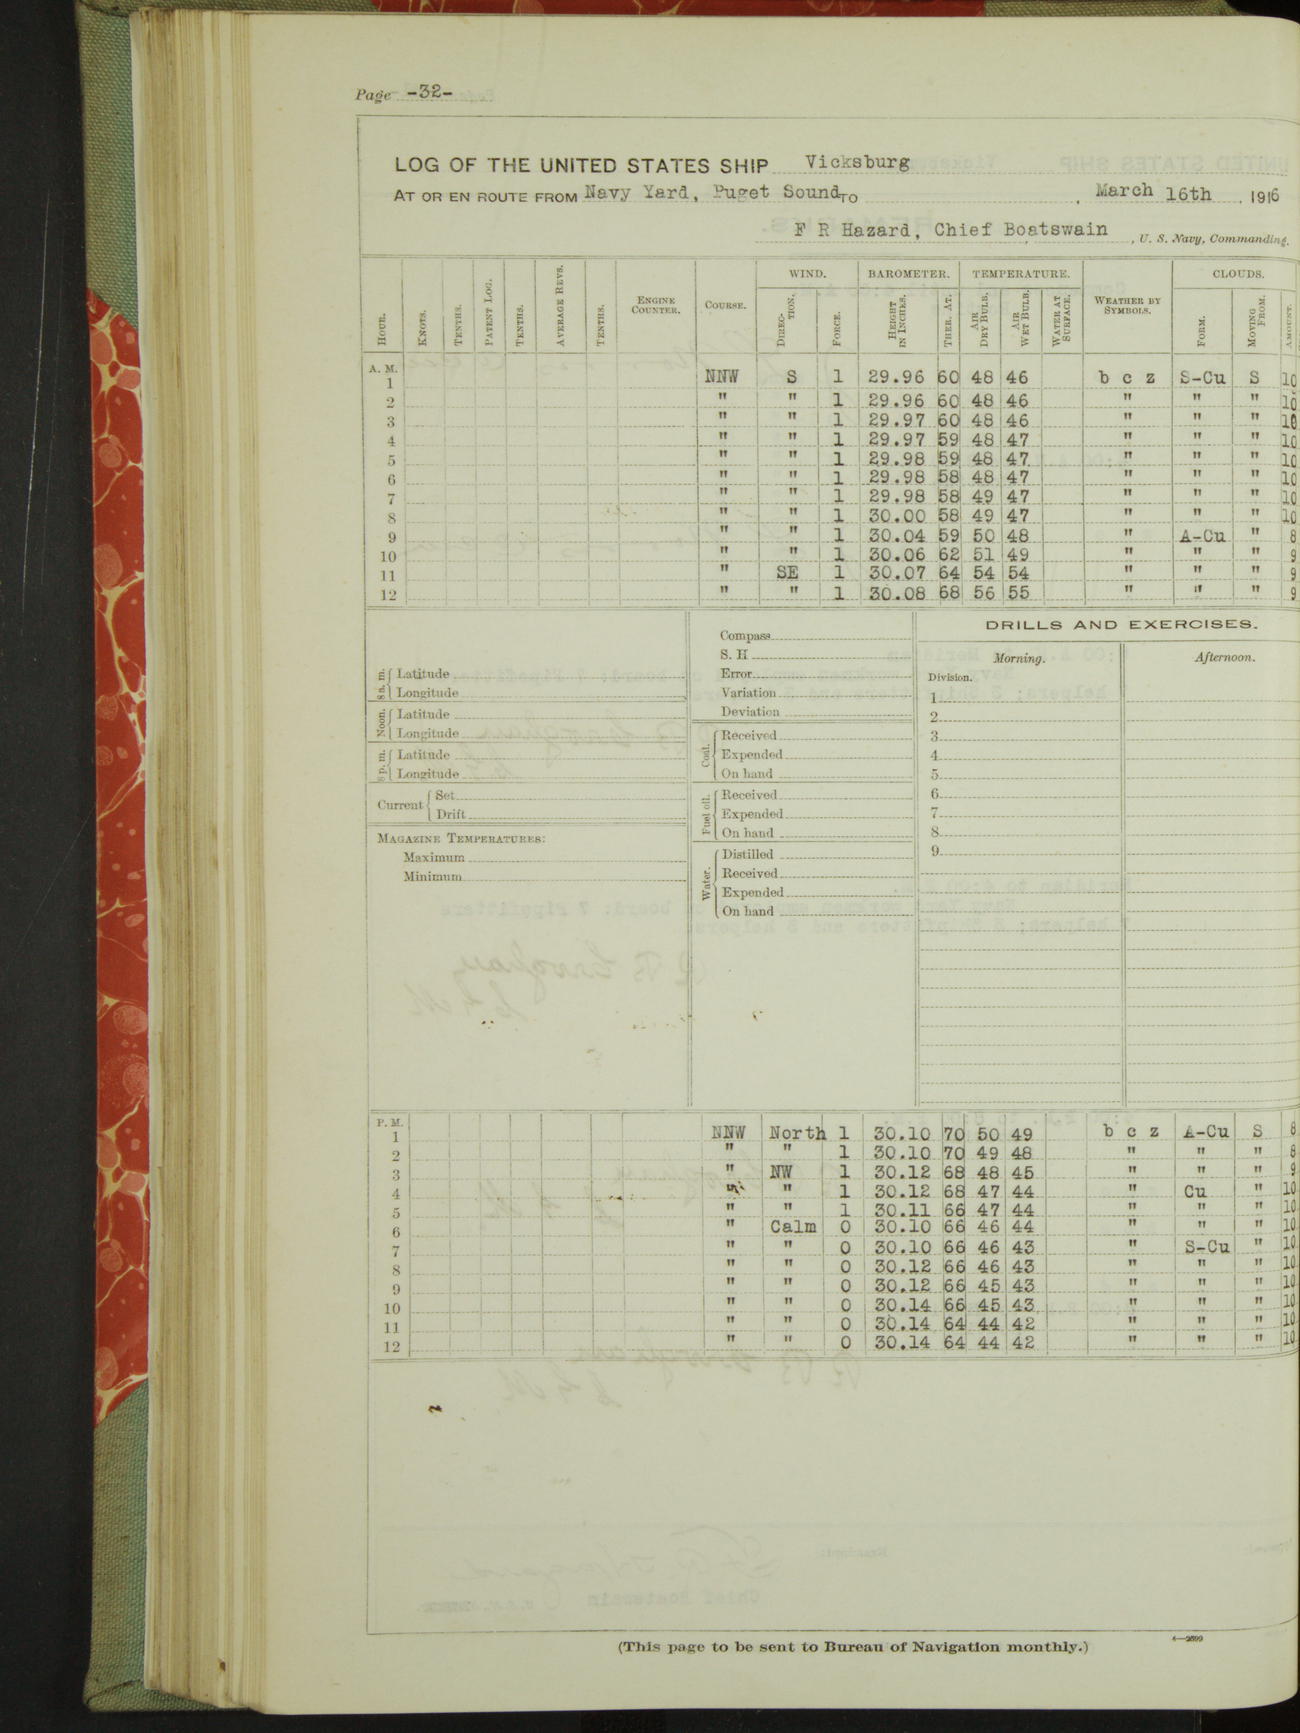 Page -32-
LOG OF THE UNITED STATES SHIP Vicksburg
AT OR EN ROUTE FROM Navy Yard, Puget Sound TO , March 16th , 1916
F R Hazard, Chief Boatswain , U. S. Navy, Commanding.
HOUR. KNOTS. TENTHS. PATENT LOG. TENTHS. AVERAGE REVS. TENTHS. ENGINE COUNTER. COURSE. WIND. DIRECTION. FORCE. BAROMETER. HEIGHT IN INCHES. THER. AT. TEMPERATURE. AIR DRY BULB. AIR WET BULB. WATER AT SURFACE. WEATHER BY SYMBOLS. CLOUDS. FORM. MOVING FROM. AMOUNT.
A. M.
1 NNW S 1 29.96 60 48 46 b c z S-Cu S 10
2 " " 1 29.96 60 48 46 " " " 10
3 " " 1 29.97 60 48 46 " " " 10
4 " " 1 29.97 59 48 47 " " " 10
5 " " 1 29.98 59 48 47 " " " 10
6 " " 1 29.98 58 48 47 " " " 10
7 " " 1 29.98 58 49 47 " " " 10
8 " " 1 30.00 58 49 47 " " " 10
9 " " 1 30.04 59 50 48 " A-Cu " 8
10 " " 1 30.06 62 51 49 " " " 9
11 " SE 1 30.07 64 54 54 " " " 9
12 " " 1 30.08 68 56 55 " " " 9
8 a. m. Latitude
Longitude
Noon. Latitude
Longitude
8 p. m. Latitude
Longitude
Current Set
Drift
MAGAZINE TEMPERATURES:
Maximum
Minimum
Compass
S. H
Error
Variation
Deviation
Coal. Received
Expended
On hand
Fuel oil. Received
Expended
On hand
Water. Distilled
Received
Expended
On hand
DRILLS AND EXERCISES.
Morning. Afternoon.
Division.
1
2
3
4
5
6
7
8
9
P. M.
1 NNW North 1 30.10 70 50 49 b c z A-Cu S 8
2 " " 1 30.10 70 49 48 " " " 8
3 " NW 1 30.12 68 48 45 " " " 9
4 " " 1 30.12 68 47 44 " Cu " 10
5 " " 1 30.11 66 47 44 " " " 10
6 " Calm 0 30.10 66 46 44 " " " 10
7 " " 0 30.10 66 46 43 " S-Cu " 10
8 " " 0 30.12 66 46 43 " " " 10
9 " " 0 30.12 66 45 43 " " " 10
10 " " 0 30.14 66 45 43 " " " 10
11 " " 0 30.14 64 44 42 " " " 10
12 " " 0 30.14 64 44 42 " " " 10
(This page to be sent to Bureau of Navigation monthly.)